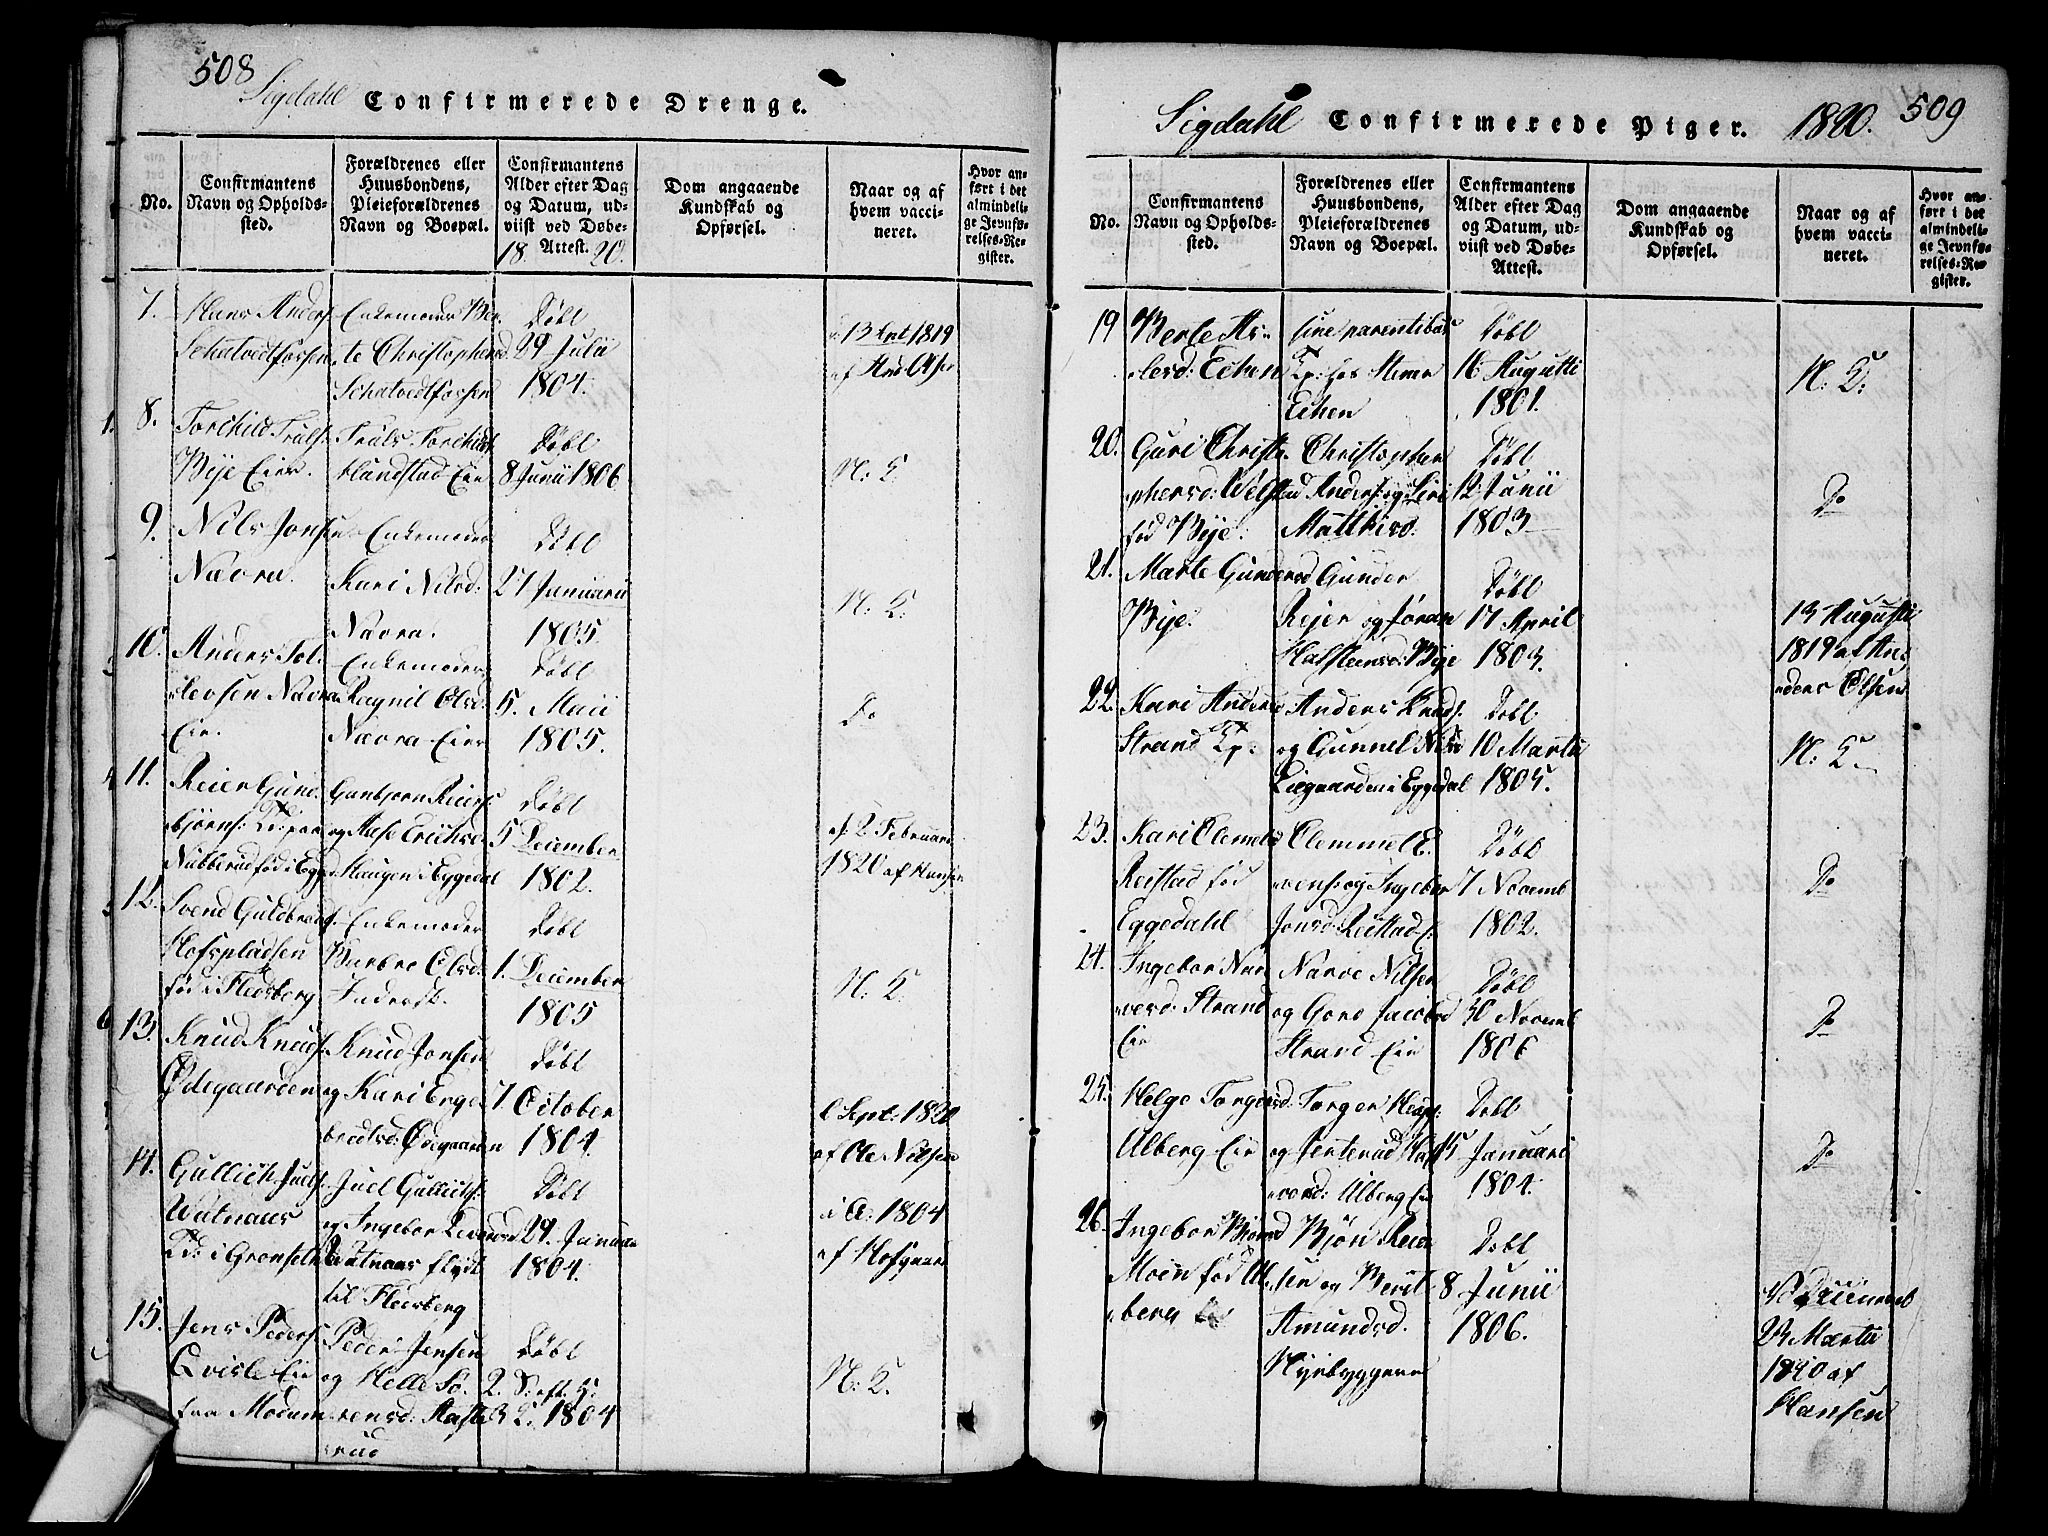 508
Sigdahl Confirmerede Drenge.
No.
Confirmantens
Navn og Opholds-
sted.
Forældrenes eller
Huusbondens,
Pleieforældrenes
Navn og Boepæl.
Confirmantens
Alder efter Dag
og Datum, ud-
viist ved Døbe-
Attest.
1820.
Dom angaaende
Kundskab og
Opførsel.
Naar og af
hvem vacci-
neret.
Hvor an-
ført i det
almindeli-
ge Jevnfø-
relses-Re-
gister.
7.
Hans Anders.
Enkemoder Ber-
te Christophersd
Døbt
29 Julii
1804.
13 1819
af
8.
Torchild Truls.
Bye Eier.
Truls Torchilds
Handstad Eie
Døbt
8 Junii 1806
N: 5
9.
Nils Jonsen
Nævra.
Enkemoder
Kari Nilsd:
Nævra.
Døbt
27 Januarii
1805.
N: 5:
10.
Anders Tol-
levsen Nævra
Eie.
Enkemoder
Ragnil Olsd:
Nævra Eier
Døbt
5. Maii
1805.
Do
11.
Reier Gund-
bjørns:
Nubberud fød i Egged
Gunbjørn Reiers.
og Aase Erichsd.
Haugen i Eggedal
Døbt
5 December
1802.
2 Februari
1820 af Hansen
12.
Svend Guldbrands.
Hofspladsen
fød i Flesberg
Enkemoder
Barbro Olsd:
Inderst.
Døbt
1. December
1805
N: 5
13.
Knud Knuds.
Ødegaarden
Knud Jonsen
og Kari Enge-
bretsd: Ødegaarden
Døbt
7. October
1804.
Sept: 1820
af Ole Nilsen
14.
Gullich Juels.
Watnaas
Juel Gullichs.
og Ingebor
Watnaas flydt
til Flesberg
Døbt
29. Januar
1804.
i A: 1804
af Hofgaard
15.
Jens Peders.
Qvisle Eie
fra Modum
Peder Jensen
og Helle Sø-
rensd:
rud
Døbt
2. S: eft: 5:
1804
N: 5.
Sigdahl Confirmerede Piger. 1820. 509
No.
Confirmantens
Navn og Opholds-
sted.
Forældrenes eller
Huusbondens,
Pleieforældrenes
Navn og Boepæl.
Confirmantens
Alder efter Dag
og Datum, ud-
viist ved Døbe-
Attest.
Dom angaaende
Kundskab og
Opførsel.
Naar og af
hvem vacci-
neret.
Hvor an-
ført i det
almindeli-
ge Jevnfø-
relses-Re-
gister.
19
Berte As-
lersd: Echen
sine parentibus
Echen
Døbt
16 Augusti
1801.
N: 5:
20.
Guri Christo-
phersd: Welstad
fød Bye:
Christopher
Anders: og Siri
Matthisd.
Døbt
12 Junii
1803
Do
21.
Marte Gundersd
Bye.
Gunder
Rejer og Jøran
Halsteensd: Bye
Døbt
17 April
1803.
13 Augusti
1819 af An-
ders Olsen
22.
Kari Andersd
Strand
Anders Knuds.
og Gunnel Nilsd
Liegaarden i Eggedal
Døbt
10 Martii
1805.
N: 5
23.
Kari Clemetsd
Reistad fød
Eggedahl
Clemmet E-
vens: og Ingebor
Jonsd: Reistad
Døbt
7 Novemb
1802.
Do
24.
Ingebor Nar-
vesd: Strand
Eie
Narve Nilsen
og Goro Jacobsd
Strand Eie
Døbt
30 Novemb
1806
Do
25.
Helge Torgersd:
Ulberg Eie
Torger
og
Ulberg Eie
Døbt
15 Januari
1804.
Do
26.
Ingebor Bjørnsd
Moen fød Ul-
berg
Bjøn Reier-
sen og Berit
Amundsd.
Nyebyggere
Døbt
8 Junii
1806.
Vaccineret
23 Martii
1820 af
Hansen